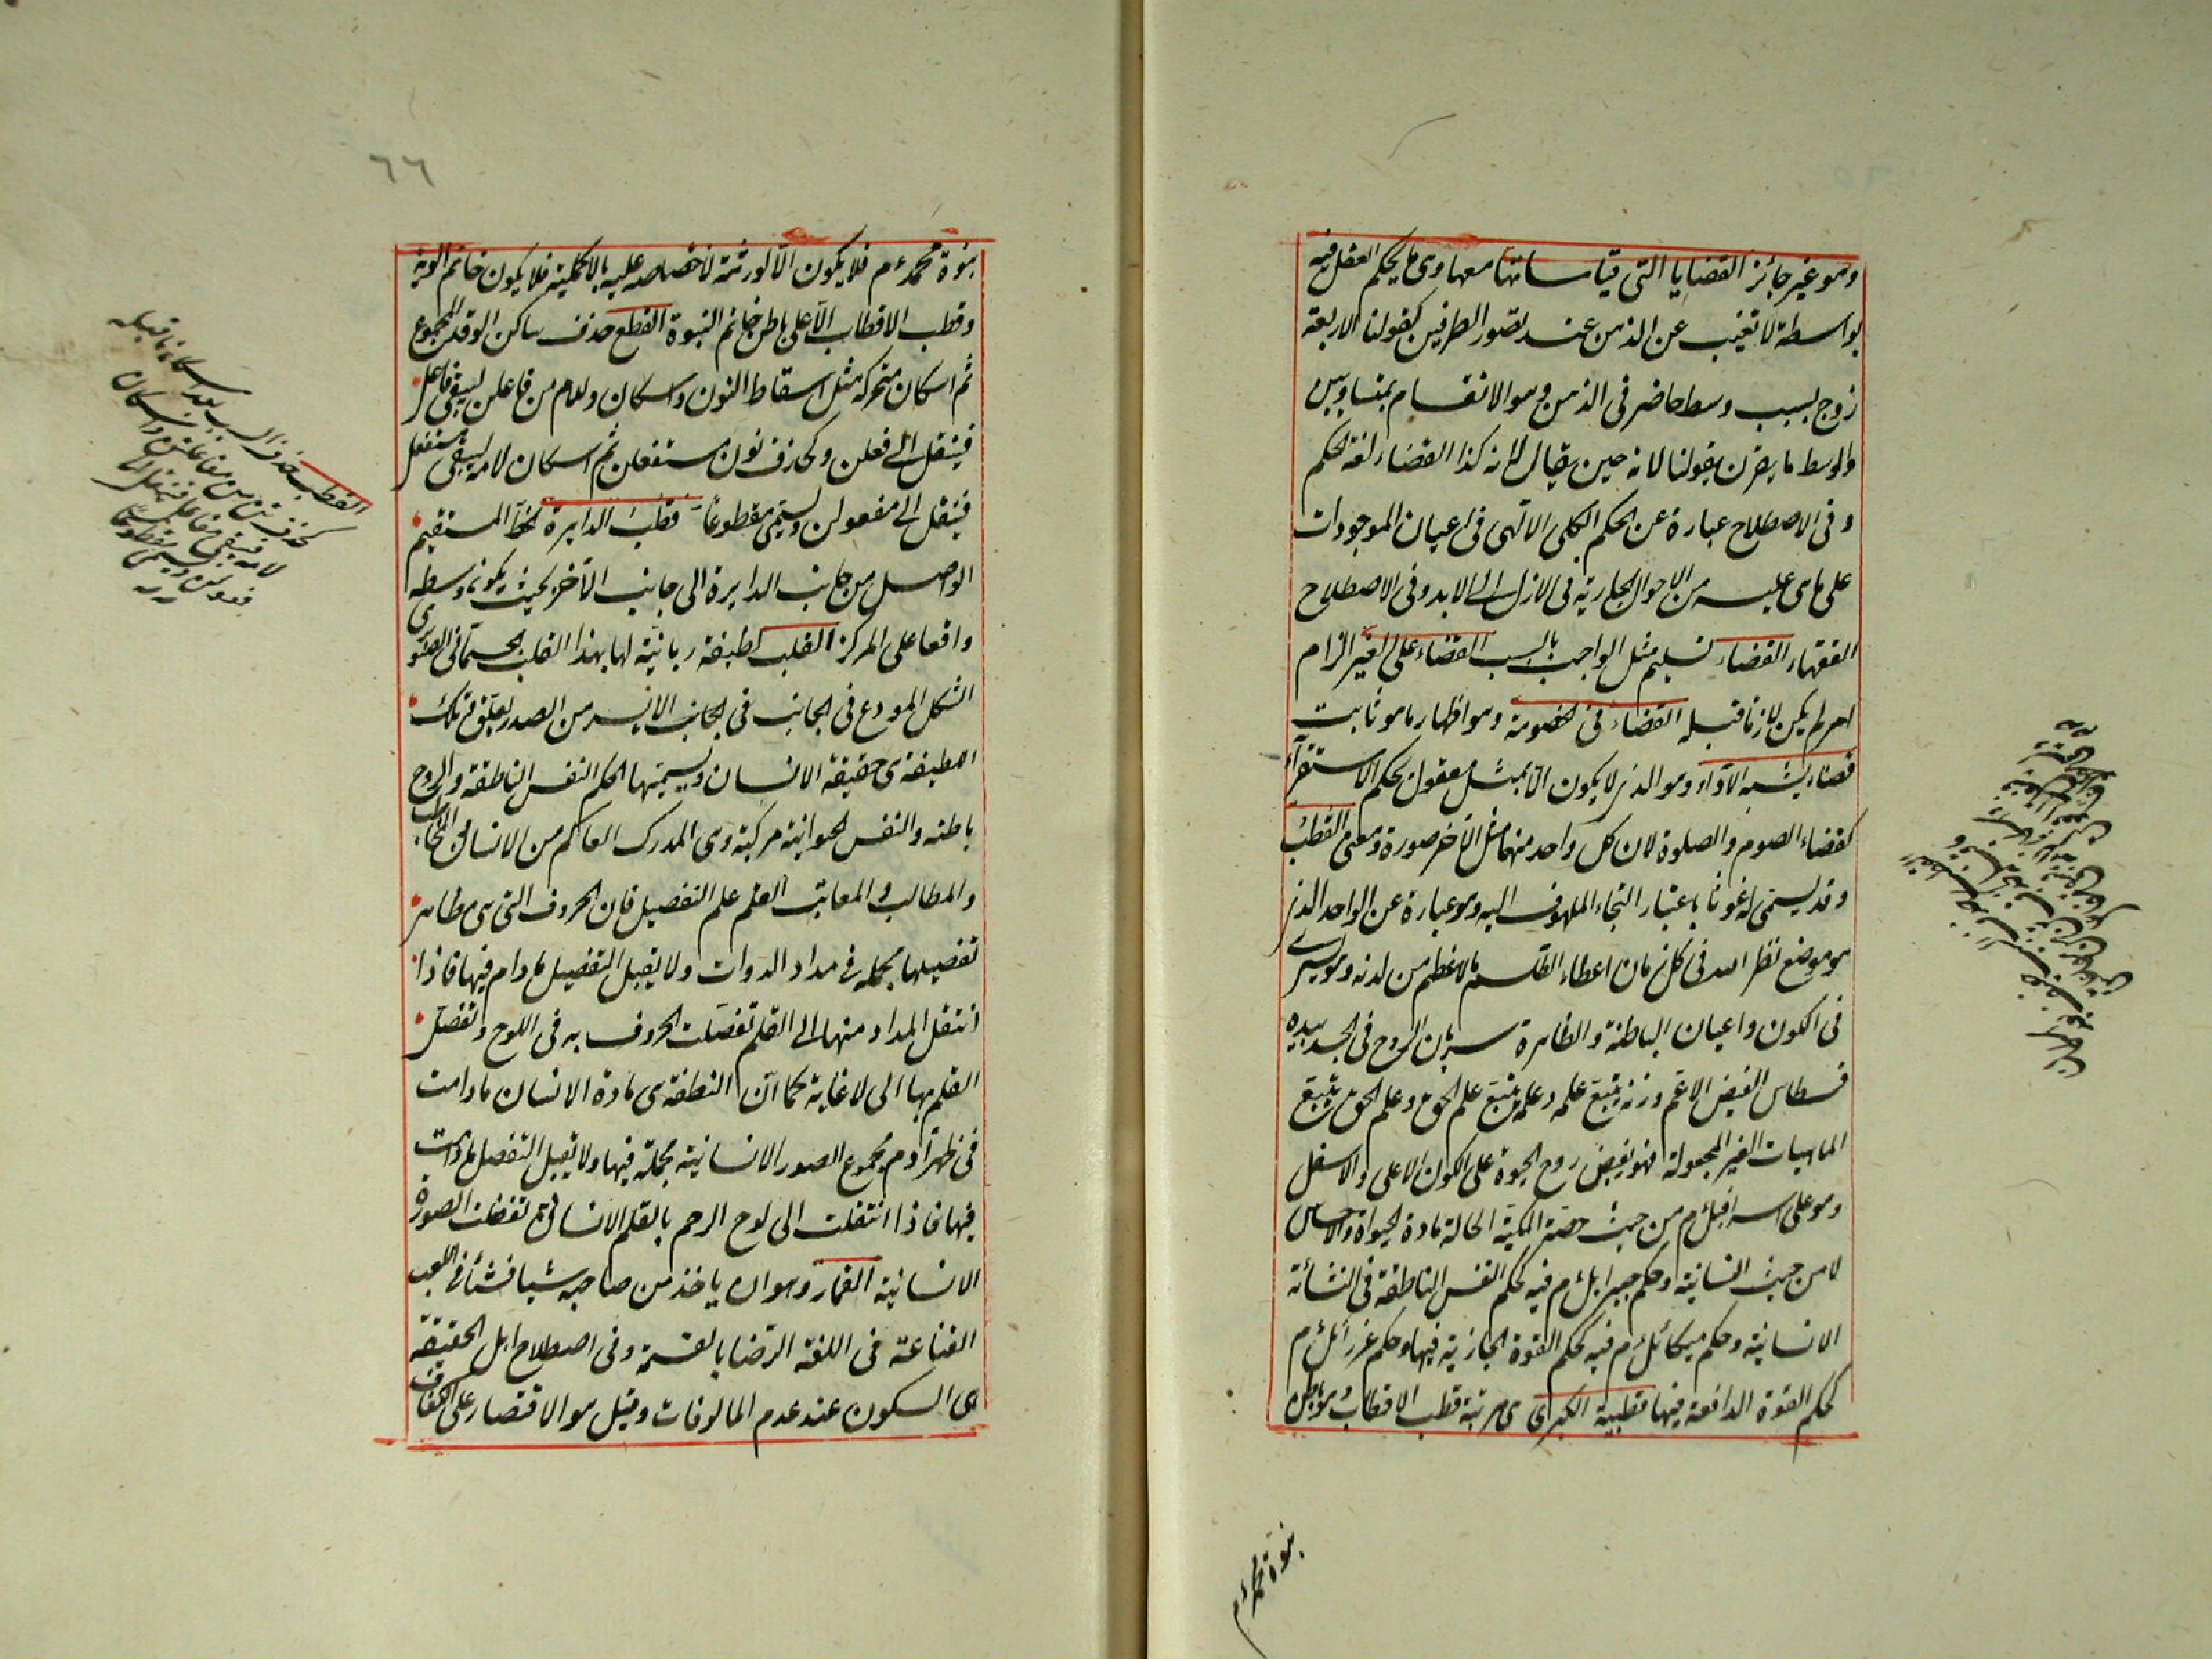 وهو غير جائز القضايا التى قياساتها معها وهى ما يحكم العقل فيه
بواسطة لا تغيب عن الذهن عند تصور الطرفين كقولنا الاربعة
زوج بسبب وسط حاضر فى الذهن وهو الانقسام بمتساويين
والوسط ما يقرن بقولنا لانه حين يقال لانه كذا القضاء لغة الحكم
وفى الاصطلاح عبارة عن الحكم الكلى الالهى فى اعيان الموجودات
على ما هى عليه من الاحوال الجارية فى الازل الى الابد وفى الاصطلاح
الفقهاء القضاء تسليم مثل الواجب بالسبب القضاء على الغير الزام
امر لم يكن لازما قبله القضاء فى الخصومة وهو اظهار ما هو ثابت
قضاء يشبه الاداء وهو الذى لا يكون الا بمثل معقول بحكم الاستقراء
كقضاء الصوم والصلوة لان كل واحد منهما مثل الاخر صورة ومعنى القطب
وقد يسمى غوثا باعتبار التجاء الملهوف اليه وهو عبارة عن الواحد الذى
هو موضع نظر الله فى كل زمان اعطاه الطلسم الاعظم من لدنه وهو يسرى
فى الكون واعيان الباطنة والظاهرة سريان الروح فى الجسد بيده
قسطاس الفيض الاعم وزنه يتبع علمه وعلمه يتبع علم الحق وعلم الحق يتبع
الماهيات الغير المجعولة فهو يفيض روح الحيوة على الكون الاعلى والاسفل
وهو على اسرافيل م من حيث حصته الملكية الحاملة مادة الحيواة والاحساس
لا من حيث انسانيته وحكم جبرائل م فيه كحكم النفس الناطقة فى النشأة
الانسانية وحكم ميكائل م فيه كحكم القوة الجاذبة فيها وحكم عزرائل م
كحكم القوة الدافعة فيها قطبية الكبرى هى مرتبة قطب الاقطاب وهو باطن
نبوة محمد ءم
٦٦
نبوة محمد ءم فلا يكون الا لورثته لاختصاصه عليه بالاكملية فلا يكون خاتم الولاية
وقطب الاقطاب الا على باطن خاتم النبوة القطع حذف ساكن الوتد المجموع
ثم اسكان متحركه مثل اسقاط النون واسكان واللام من فاعلن ليبقى فاعل
فينقل الى فعلن وكحذف نون مستفعلن ثم اسكان لامه ليبقى مستفعل
فينقل الى مفعولن ويسمى مقطوعا قطب الدايرة الخط المستقيم
الواصل من جانب الدايرة الى جانب الاخر بحيث يكون وسطه
واقعا على المركز القلب لطيفة ربانية لها بهذا القلب الجسمانى الصنوبرى
الشكل المودع فى الجانب فى الجانب الايسر من الصدر تعلق وتلك
اللطيفة هى حقيقة الانسان ويسميها الحكيم النفس الناطقة والروح
باطنه والنفس الحيوانية مركبة وهى المدرك العالم من الانسان والمخاطب
والمطالب والمعاتب القلم علم التفصيل فان الحروف التى هى مظاهر
تفصيلها مجملة فى مداد الدوات ولا يقبل التفصيل ما دام فيها فاذا
انتقل المداد منها الى القلم تفصلت الحروف به فى اللوح وتفصل
القلم بها الى لا غاية كما ان النطفة هى مادة الانسان ما دامت
فى ظهر آدم مجموع الصور الانسانية مجملة فيها ولا تقبل التفصيل ما دامت
فيها فاذا انتقلت الى لوح الرحم بالقلم الانسانى تفصلت الصورة
الانسانية القمار وهو ان ياخذ من صاحبه شيا فشئا فى اللعب
القناعة فى اللغة الرضا بالقسمة وفى اصطلاح اهل الحقيقة
هى السكون عند عدم المالوفات وقيل هو الاقتصار على الكفاف
القطب حذف السبب بعد اسكان ما قبله
كحذف تن من مفاعلتن واسكان
لامه فيبقى مفاعل فينقل الى
فعولن ويسمى مقطوفا